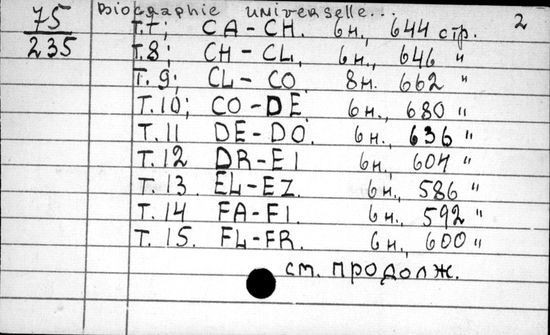 75
235
Biographie universelle... 2
Т.7; CA-CH. 6н., 644 стр.
Т.8; CH-CL, 6н., 646 "
Т.9; CL-CO 8н. 662 "
Т.10; CO-DE 6н., 680 "
Т.11 DE-DO. 6н., 636 "
Т.12 DR-EI 6н., 604 "
Т.13 EL-EZ. 6н., 586 "
Т.14 FA-FI. 6н., 592 "
Т.15. FL-FR. 6н., 600 "
см. продолж.